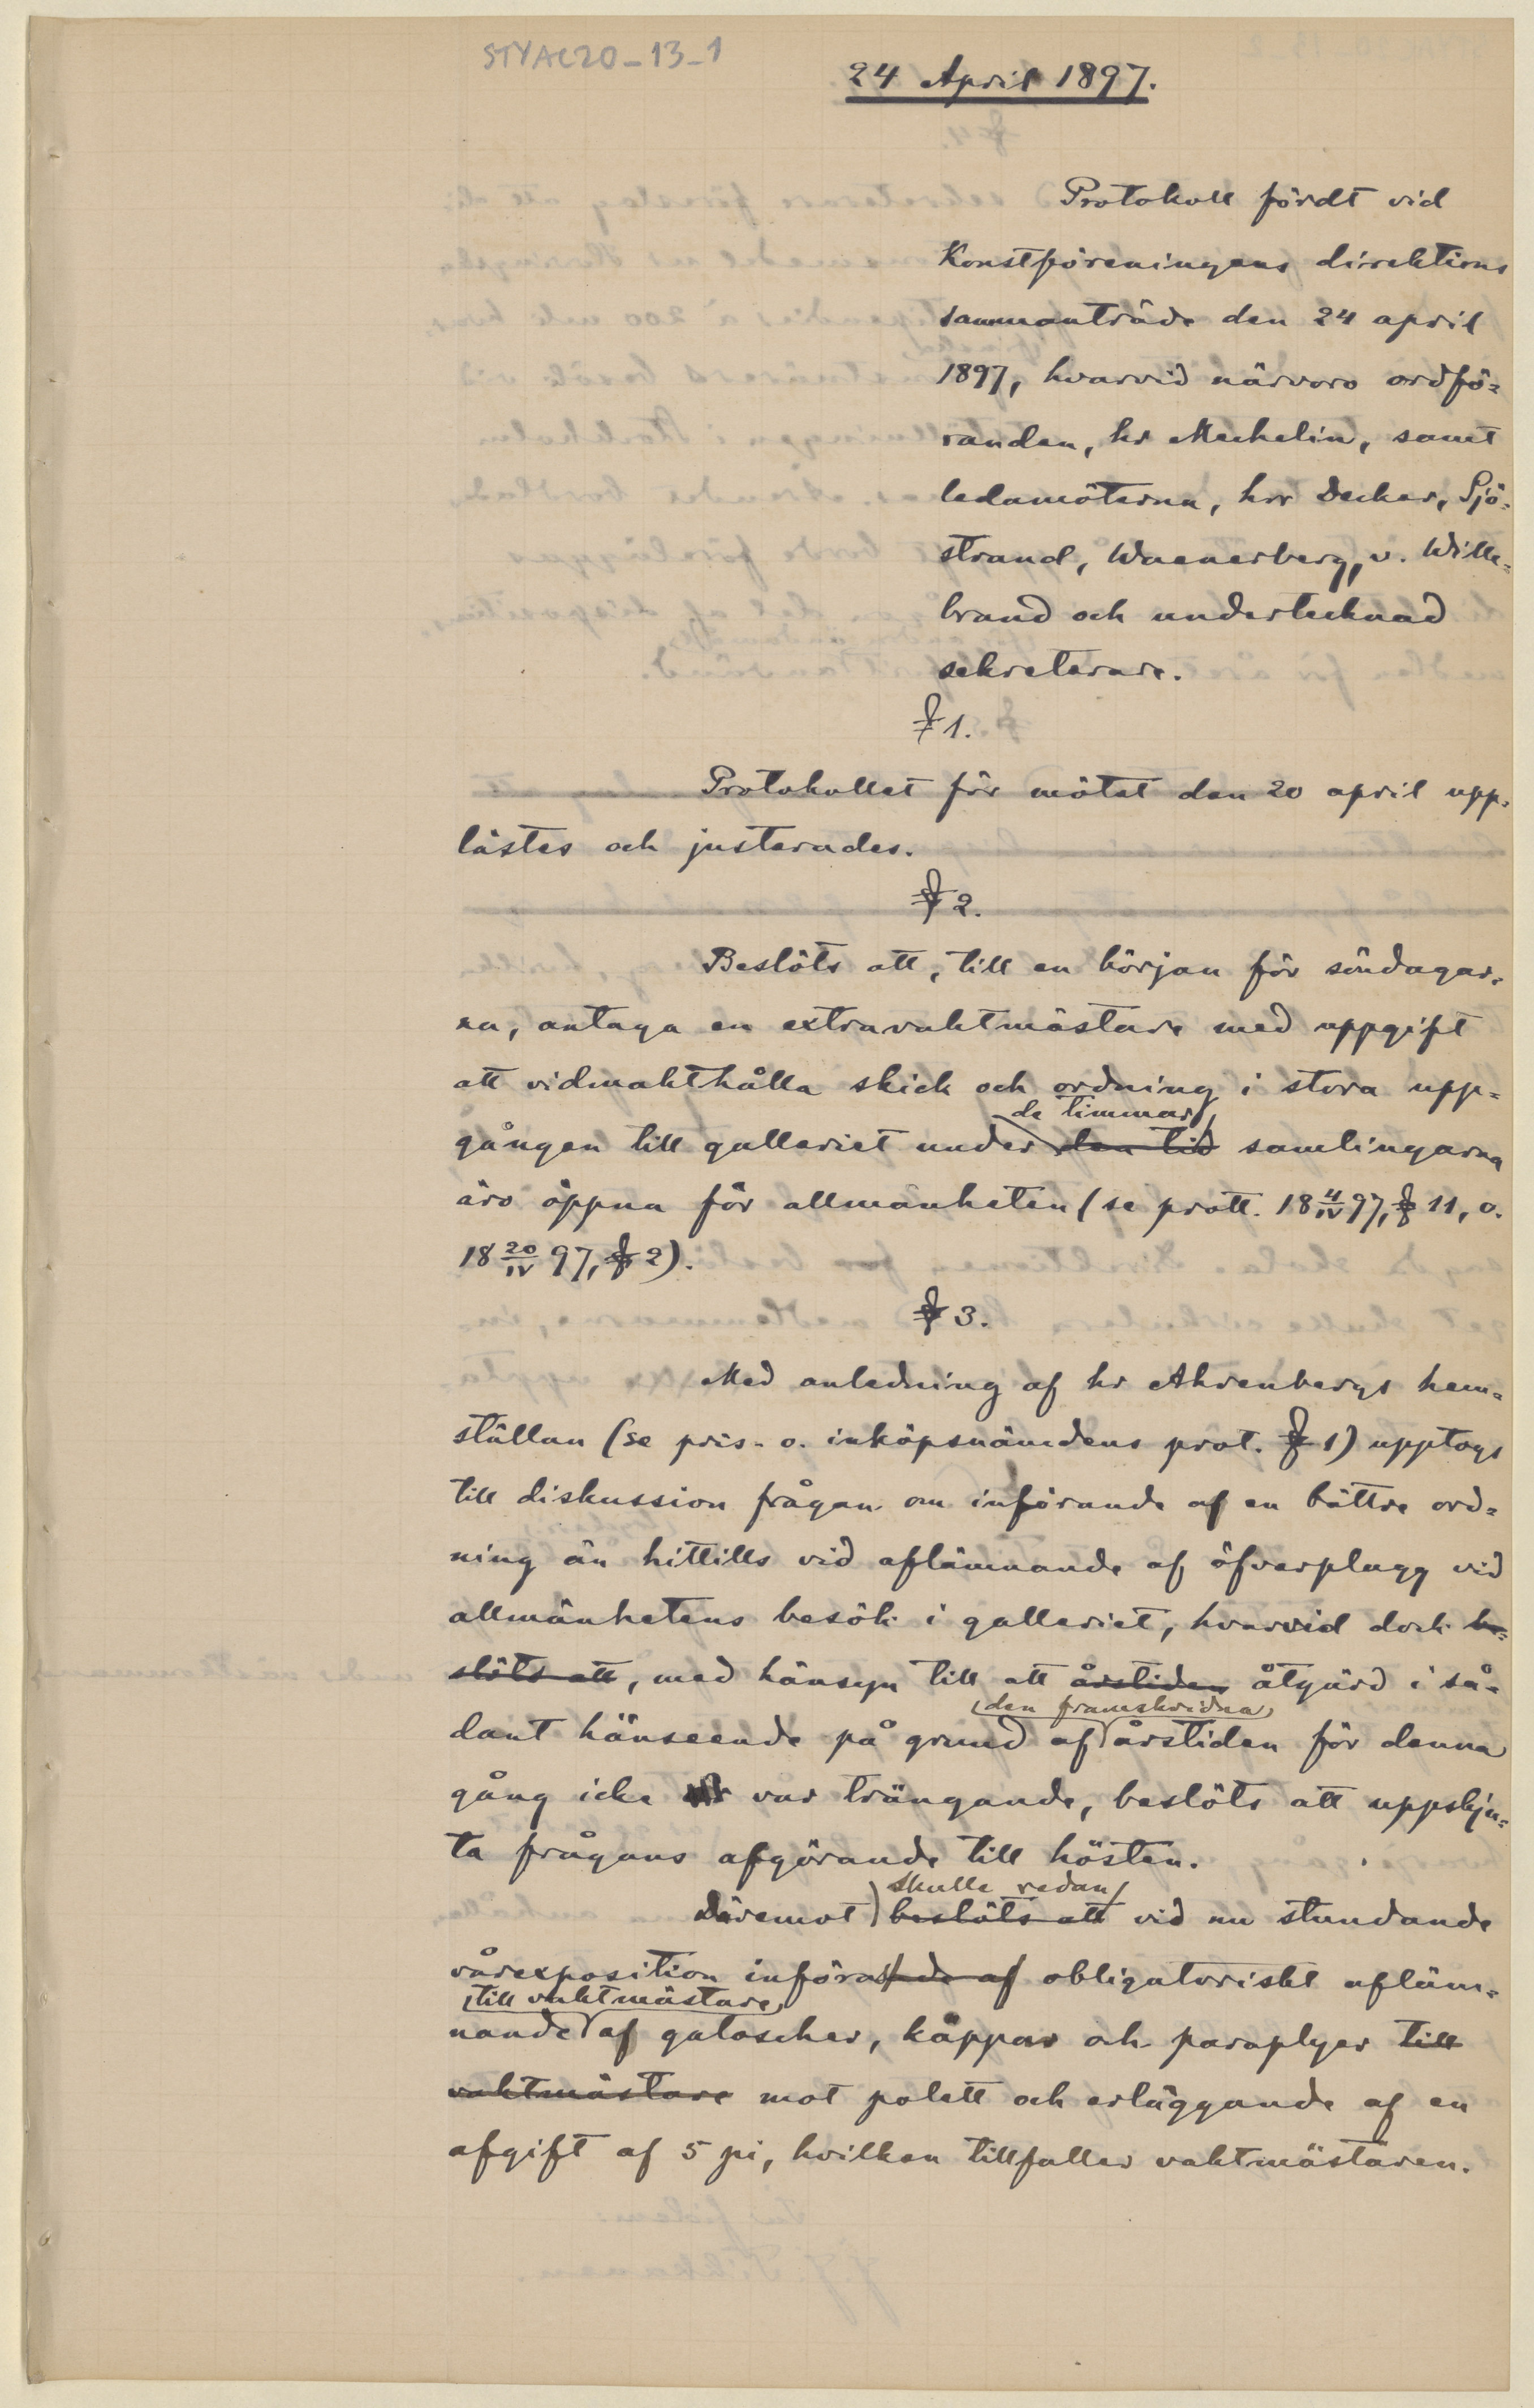 STYAC20-13-1
24 April 1897.
Protokoll fördt vid
Konstföreningens direktions
sammanträde den 24 april
1897, hvarvid närvoro ordfö-
randen, hr Mechelin, samt
ledamöterna, hrr Decker, Sjö-
strand, Waenerberg, v. Wille-
brand och undertecknad
sekreterare.
§ 1.
Protokollet för mötet den 20 april upp-
lästes och justerades.
§ 2.
Beslöts att, till en början för söndagar-
na, antaga en extravaktmästare med uppgift
att vidmakthålla skick och ordning i stora upp-
de timmar
gången till galleriet under den tid samlingarna
äro öppna för allmänheten (se prott. 18 4/IV 97, § 11, o.
18 20/IV 97, § 2).
§ 3.
Med anledning af hr Ahrenbergs hem-
ställan (se pris- o. inköpsnämdens prot. § 1) upptogs
till diskussion frågan om införande af en bättre ord-
ning än hittills vid aflämnande af öfverplagg vid
allmänhetens besök i galleriet, hvarvid dock be-
slöts att, med hänsyn till att årstiden åtgärd i så-
den framskridna
dant hänseende på grund af årstiden för denna
gång icke var trängande, beslöts att uppskju-
ta frågans afgörande till hösten.
skulle redan
Däremot beslöts att vid nu stundande
vårexposition införas/nde af obligatoriskt afläm-
till vaktmästare
nande af galoscher, käppar och paraplyer till
vaktmästare mot polett och erläggande af en
afgift af 5 pi, hvilken tillfaller vaktmästaren.